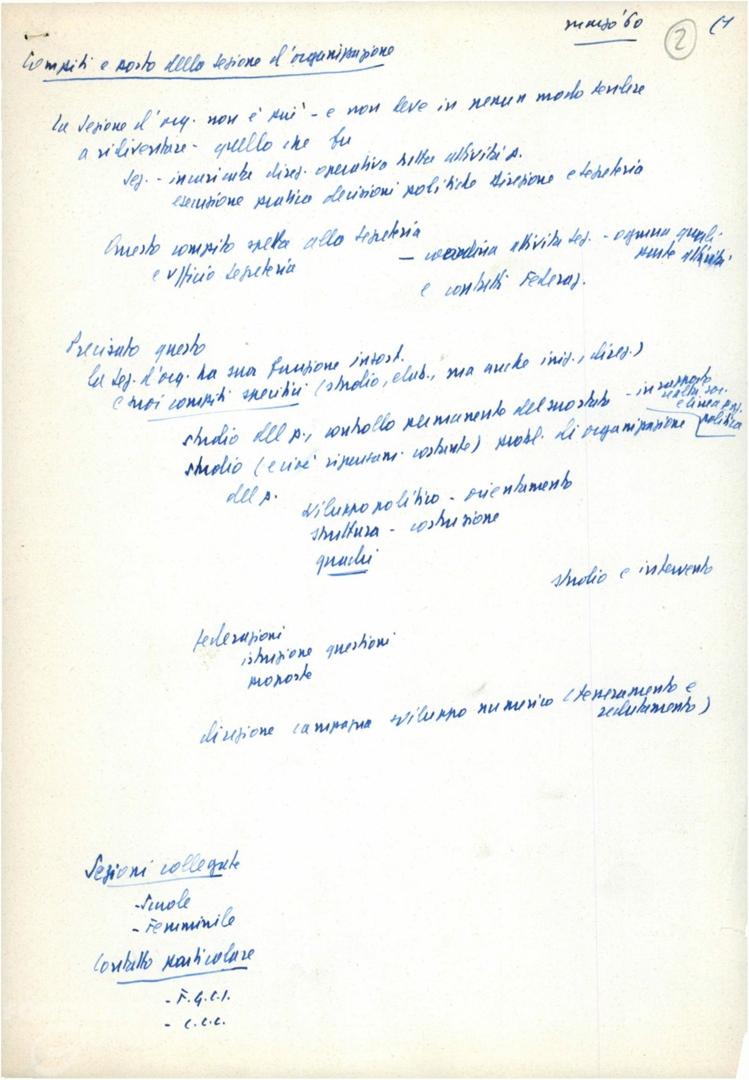 marzo '60
2
(1
Compiti e posto della sezione d'organizzazione
La Sezione d'org. non è più - e non deve in nessun modo tendere
a ridiventare - quello che fu
Sez. - incaricata direz. operativa della attività p.
esecuzione pratica decisioni politiche Direzione e Segreteria
Questo compito spetta alla Segreteria
e Ufficio Segreteria
— coordina attività sez. - ognuna quali
attività
e contatti Federaz.
Precisato questo
la Sez. d'org. ha sua funzione insost.
e suoi compiti specifici (studio, elab., ma anche iniz., direz.)
studio del p., controllo permanente del suo stato - in rapporto
realtà soc.
e linea
politica
studio (e cioè ripensam. costante) probl. di organizzazione
del p.
Sviluppo politico - orientamento
struttura - costruzione
quadri
studio e intervento
Federazioni
istruzione questioni
proposte
direzione campagna sviluppo numerico (tesseramento e
reclutamento)
Sezioni collegate
- Scuole
- Femminile
Contatto particolare
- F.G.C.I.
- C.C.C.